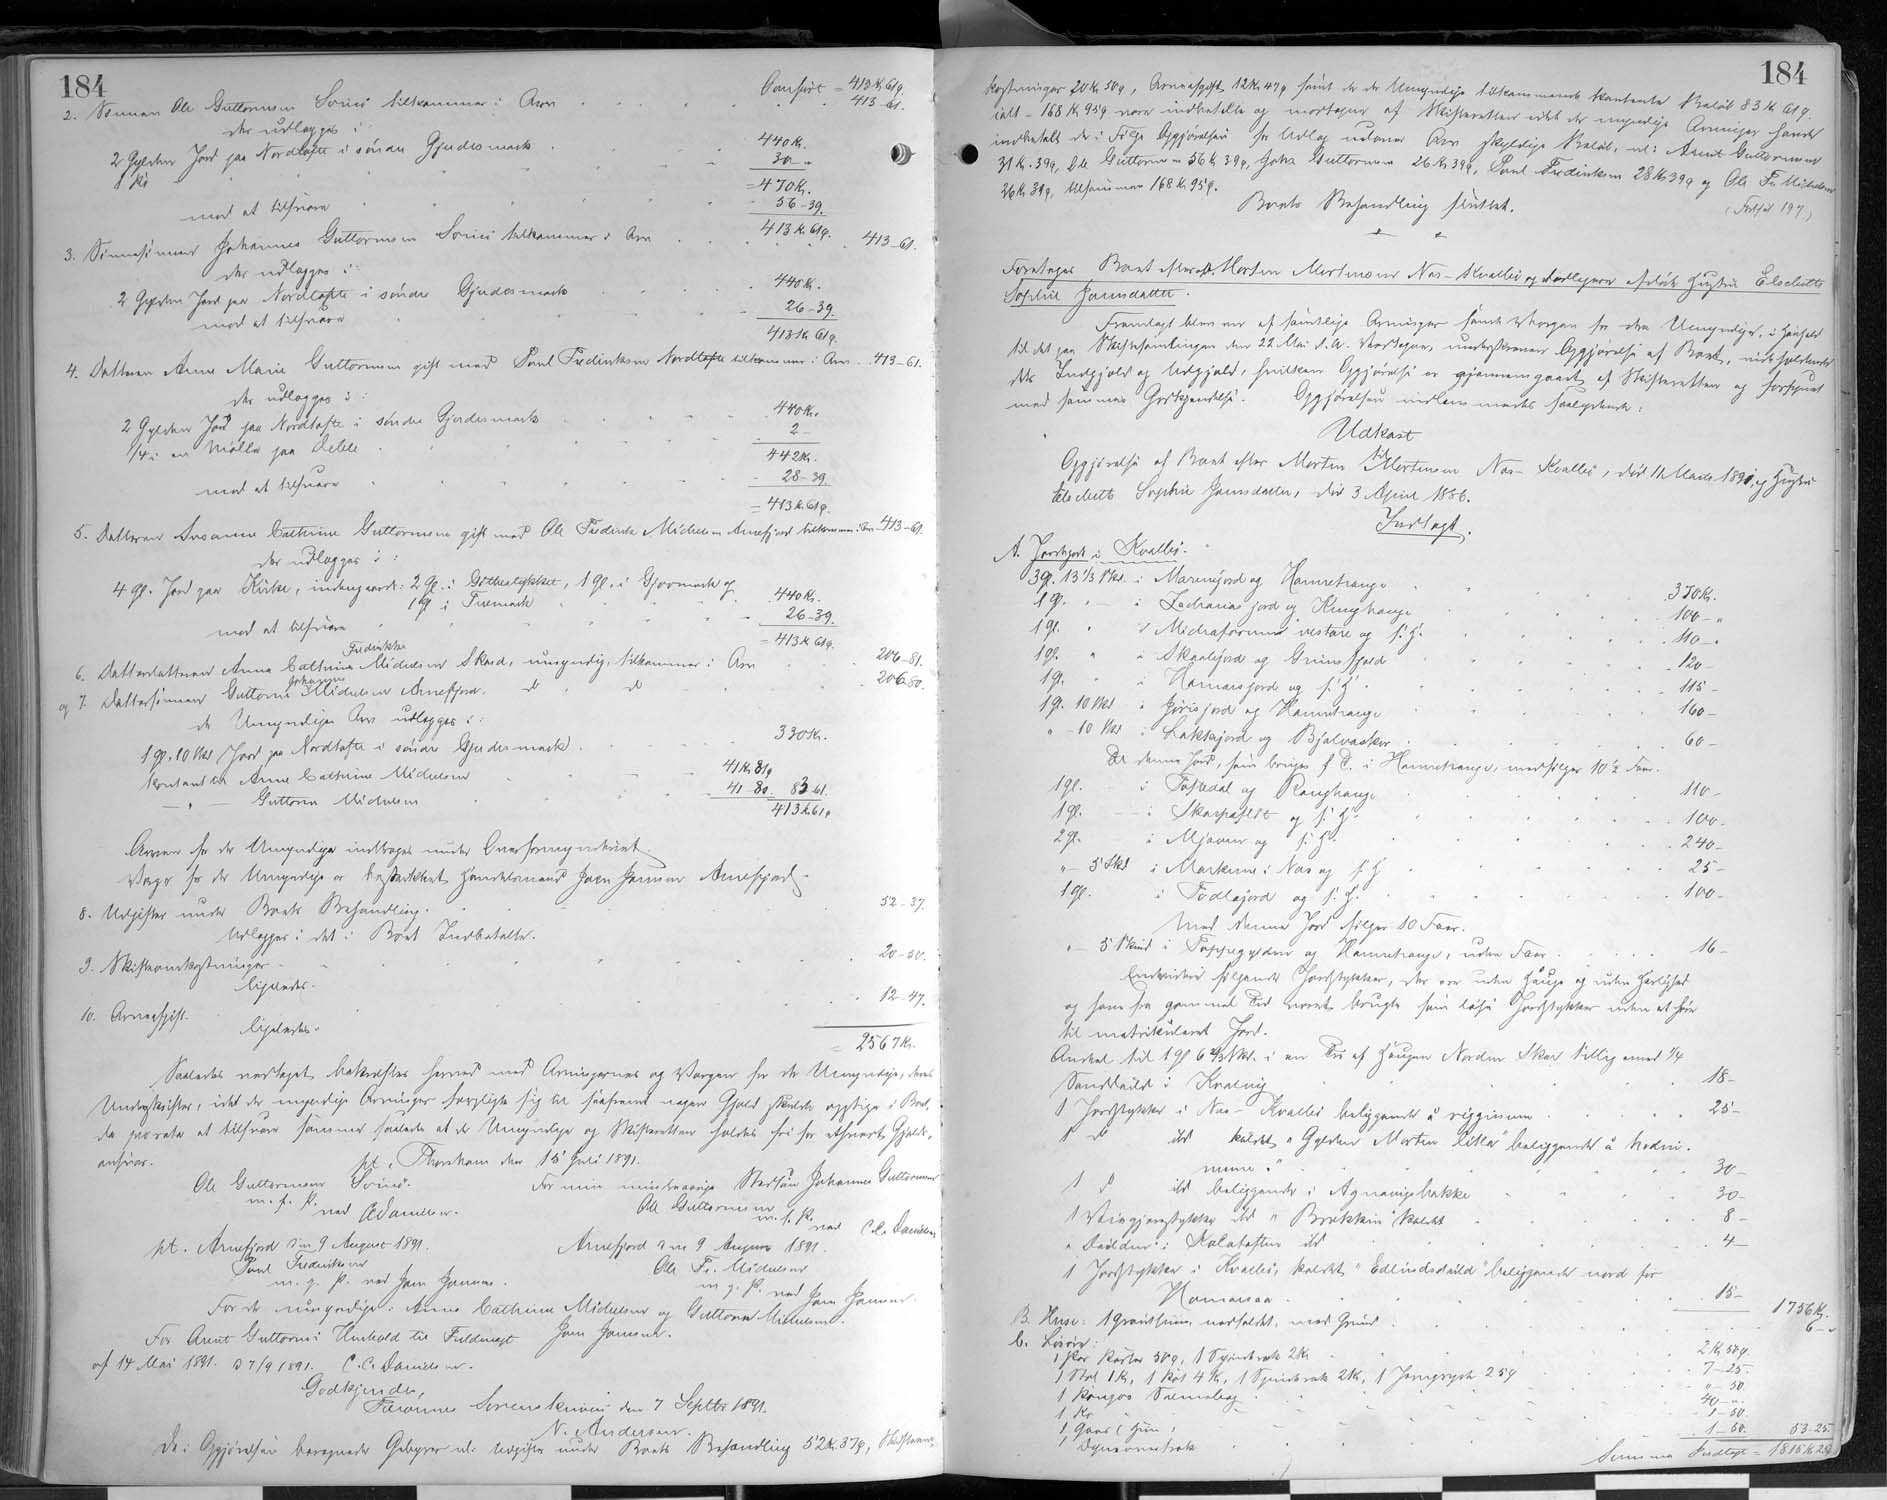 184
Overført = 413 Kr. 61 ø.
2. Sønnen Ole Guttormsen Sørvi tilkommer i Arv 413-61.
der udlægges i
2 Gylden Jord paa Nordtofte i søndre Gjerdesmark 440 Kr.
1 Ko 30 -
= 470 Kr.
mod at tilsvare 56-39.
413 Kr. 61 ø.
3. Sønnesønnen Johannes Guttormsen Sørvi tilkommer i Arv 413-61.
der udlægges i
2 Gylden Jord paa Nordtofte i søndre Gjerdesmark 440 Kr.
mod at tilsvare 26-39.
413 Kr. 61 ø.
4. Datteren Anne Marie Guttormsen gift med Poul Fredriksen Nordtofte tilkommer i Arv 413-61.
der udlægges i:
2 Gylden Jord paa Nordtofte i søndre Gjerdesmark 440 Kr.
1/4 i en Mølle paa 2 -
442 Kr.
mod at tilsvare 28-39.
= 413 Kr. 61 ø.
5. Datteren Susanne Cathrine Guttormsen gift med Ole Fredrik Michelsen Arnefjord tilkommer i Arv 413-61.
der udlægges i:
4 Gl. Jord paa Kirke, indregnet: 2 Gl. i, 1 Gl. i Gjormark og
1 Gl i Tremark 440 Kr.
mod at tilsvare 26-39.
= 413 Kr. 61 ø.
6. Datterdatteren Anna Cathrine Fredrikke Michelsen Skard, umyndig, tilkommer i Arv 206-81.
og 7. Dattersønnen Guttorm Johannes Michelsen Arnefjord. do do 206-80.
de Umyndiges Arv udlægges i:
1 gl. 10 Skd Jord paa Nordtofte i søndre Gjerdesmark 330 Kr.
Kontant til Anne Cathrine Michelsen 41 Kr 81 ø
— " — Guttorm Michelsen 41-80. 83-61.
413 Kr 61 ø
Arven for de Umyndige inddrages under Overformynderiet.
Værge for de Umyndige er beskikket Handelsmand Joen Joensen Arnefjord.
8. Udgifter under Boets Behandling. 52-37.
Udlægges i det i Boet Indbetalte.
9. Skifteomkostninger 20-50.
ligeledes.
10. Arveafgift. 12-47.
ligeledes.
= 2567 Kr.
Saaledes vedtaget bekræftes herved med Arvingernes og Værgen for de Umyndige, deres
Underskrifter, idet de myndige Arvinger forpligte sig til saafremt nogen Gjæld skulde opstige i Boet,
da pro rata at tilsvare samme saaledes at de Umyndige og Skifteretten holdes fri for ethvert Gjælds-
ansvar.
pt. Thorshavn den 15 Juli 1891.
Ole Guttormsen Sørvi.
m. f. P.
ved C. Danielsen.
For min mindreaarige Stedsøn Johannes Guttormsen
Ole Guttormsen
m. f. P.
ved C.C. Danielsen
pt. Arnefjord den 9 August 1891.
Poul Fredriksen
m. f. P. ved Joen Joensen.
Arnefjord den 9 August 1891.
Ole Fr. Michelsen
m. f. P. ved Joen Joensen.
For de umyndige: Anna Cathrine Michelsen og Guttorm Michelsen.
Joen Joensen.
For Arent Guttormsen i Henhold til Fuldmagt
af 14 Mai 1891. D 7/9 1891. C.C. Danielsen.
Godkjendes,
Færøernes Sorenskriveri den 7 Septbr 1891.
N. Andersen.
De i Opgjørelsen beregnede Gebyrer nl: Udgifter under Boets Behandling 52 K. 37 ø, Skifteom-
184
kostninger 20 K. 50 ø, Arveafgift 12 K. 47 ø samt de de Umyndige tilkommende kontante Beløb 83 K 61 ø.
ialt - 168 K 95 ø vare indbetalte og modtagne af Skifteretten idet de myndige Arvinger havde
indbetalt de i Følge Opgjørelsen for Udlæg udover Arv skyldige Beløb, nl: Arent Guttormsen
31 K. 39 ø, Ole Guttormsen 56 K 39 ø, Johs Guttormsen 26 K 39 ø, Poul Fredriksen 28 K 39 ø og Ole Fr. Michelsen
26 K 39 ø, tilsammen 168 K 95 ø.
Boets Behandling sluttet.
(Fortsat 197)
Foretoges Boet efter afd. Morten Mortensen Næs-Kvalbø og dødligere afdøde Hustru Elsebeth
Sophie Joensdatter.
Fremlagt blev en af samtlige Arvinger samt Værgen for den Umyndige, i Henhold
til det paa Skiftesamlingen den 22 Mai d.A. Vedtagne, underskreven Opgjørelse af Boet, indeholdende
dets Indgjæld og Udgjæld, hvilken Opgjørelse er gjennemgaaet af Skifteretten og forsynet
med sammes Godkjendelse. Opgjørelsen indlemmedes saalydende:
Udkast
til
Opgjørelse af Boet efter Morten Mortensen Næs-Kvalbø, død 11 Marts 1891, og Hustru
Elsebeth Sophie Joensdatter, død 3 April 1886.
Indtægt.
A. Jordegods i Kvalbø.
3 gl. 13 1/3 Skd. i Marenjord og Hamrehauge 370 Kr.
1 gl. " — i Zacharias jord og Krughauge 100 - "
1 gl. " i vestare og s. H. 110 - "
1 gl. " i Skaalijord og Grimsfjord 120 -
1 gl. " i Hamarsjord og s. H. 115 -
1 gl. 10 Skd i Jørisjord og Hamrehauge 160 -
" - 10 Skd i Laksajord og Bjálvasker 60 -
Til denne Jord, som bruges f. T. i Hamrehauge, medfølger 10 1/2 Faar.
1 gl. — i Fossedal og Ranghauge 110 -
1 gl. — i Skarpafelt og s. H. 100 -
2 gl. — i og s. H. 240 -
" - 5 Skd i Markerne i Næs og s. H. 25 -
1 gl. i Todlajord og s. H. 100 -
Med denne Jord følger 10 Faar.
" - 5 Skind i Toppegylden og Hamrehauge, uden Faar. 16 -
Endvidere følgende Jordstykker, der ere uden Hauge og uden Herlighed
og som fra gammel Tid været brugte som løse Jordstykker uden at høre
til matrikuleret Jord.
Andel til 1 gl 6 2/3 Skd. i en Tii af Haugen Norden Skar tillig med 1/4
i Kvalvig 18 -
1 Jordstykke i Næs-Kvalbø beliggende á ryggimum 25 -
1 do ibd kaldet "Gylden Morten litla" beliggende á
" 30 -
1 do ibd beliggende i Agnarugsbakke 30 -
1 ibd "Brekkin" kaldt 8 -
" i ibd 4 -
1 Jordstykke i Kvalbø, kaldet "Edlindsdeild" beliggende nord for
Hamarsaa 15 - 1756 Kr.
B. Huse: 1 Grønthuus, nedfaldet, med Grund 6 - "
C. Løsøre:
1 Par Karter 50 ø, 1 Spinderok 2 K. 2 K 50 ø.
1 Stol 1 K, 1 Kot 4 K, 1 Spinderok 2 K, 1 Jerngryde 25 ø 7-25.
1 Kongos Salmebog " 50.
1 Ko 40 - ".
1 Gaas (Hun) 1-50.
1 1-50. 53-25.
Summa Indtægt = 1815 K 25 ø